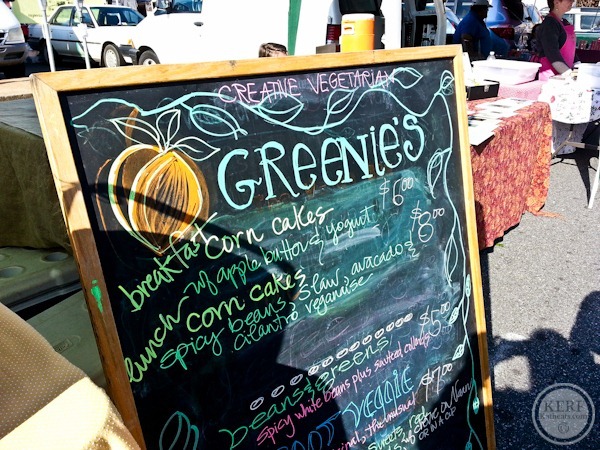 CREATIVE VEGETARIAN
GREENIE'S
breakfast corn cakes $6.00
w/ apple button & yogurt
lunch corn cakes $8.00
spicy beans, slaw, avocado &
cilantro veganaise
beans & greens! $5.00
spicy white beans plus sauteed collards
ROOT VEGGIE $7.00
the unusual
sweets
OR IN A CUP
KERF